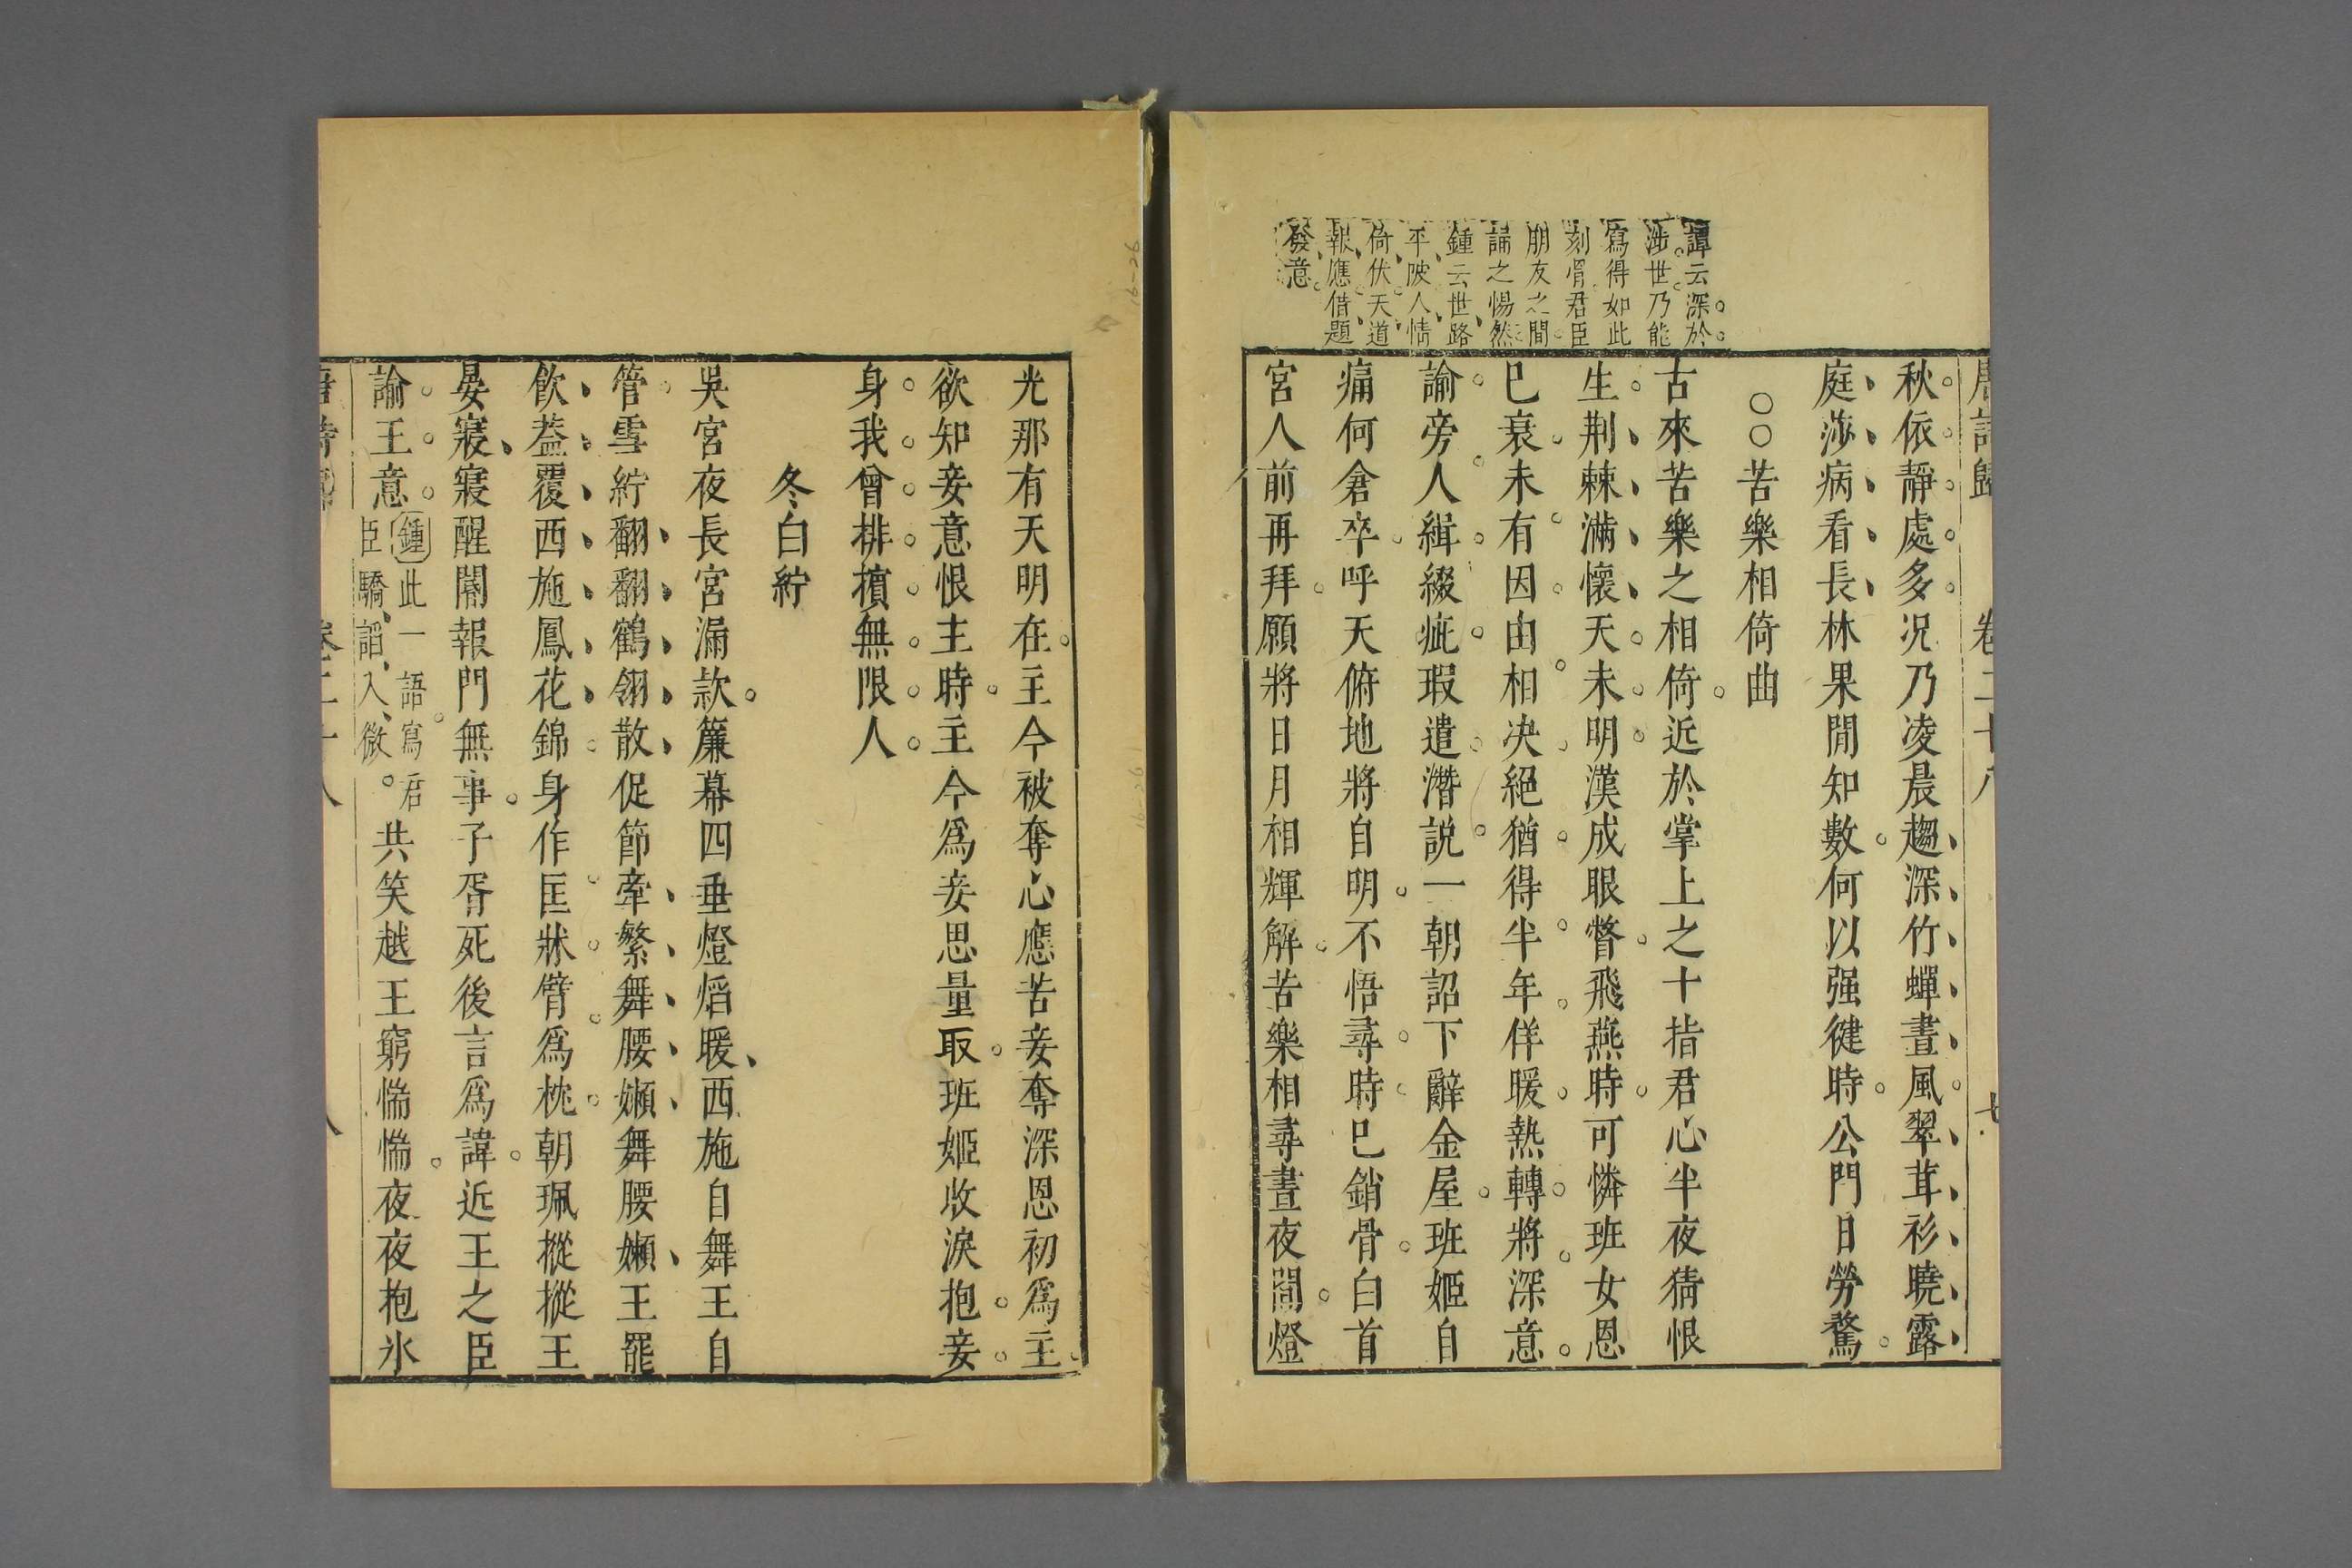 唐詩歸 卷二十八 七
秋依靜處多况乃凌晨趨深竹蟬晝風翠茸衫曉露
庭莎病看長林果閒知數何以强健時公門日勞騖
○○苦樂相倚曲
古來苦樂之相倚近於掌上之十指君心半夜猜恨
生荆棘滿懷天未明漢成眼瞥飛燕時可憐班女恩
已衰未有因由相决絕猶得半年佯暖熱轉將深意
諭旁人緝綴疵瑕遣潛説一朝詔下辭金屋班姬自
痛何倉卒呼天俯地將自明不悟尋時已銷骨白首
宮人前再拜願將日月相輝解苦樂相尋晝夜間燈
譚云深於
涉世乃能
寫得如此
刻骨君臣
朋友之間
誦之惕然
鍾云世路
平陂人情
倚伏天道
報應借題
發意
光那有天明在主今被奪心應苦妾奪深恩初爲主
欲知妾意恨主時主今爲妾思量取班姬收淚抱妾
身我曾排擯無限人
冬白紵
吳宮夜長宮漏款簾幕四垂燈熖暖西施自舞王自
管雪紵翻翻鶴翎散促節牽繁舞腰嬾舞腰嬾王罷
飮葢覆西施鳳花錦身作匡牀臂爲枕朝珮摐摐王
晏寢寢醒閽報門無事子胥死後言爲諱近王之臣
諭王意
鍾此一語寫君
臣驕謟入微
共笑越王窮惴惴夜夜抱氷
唐詩歸 卷二十八 八